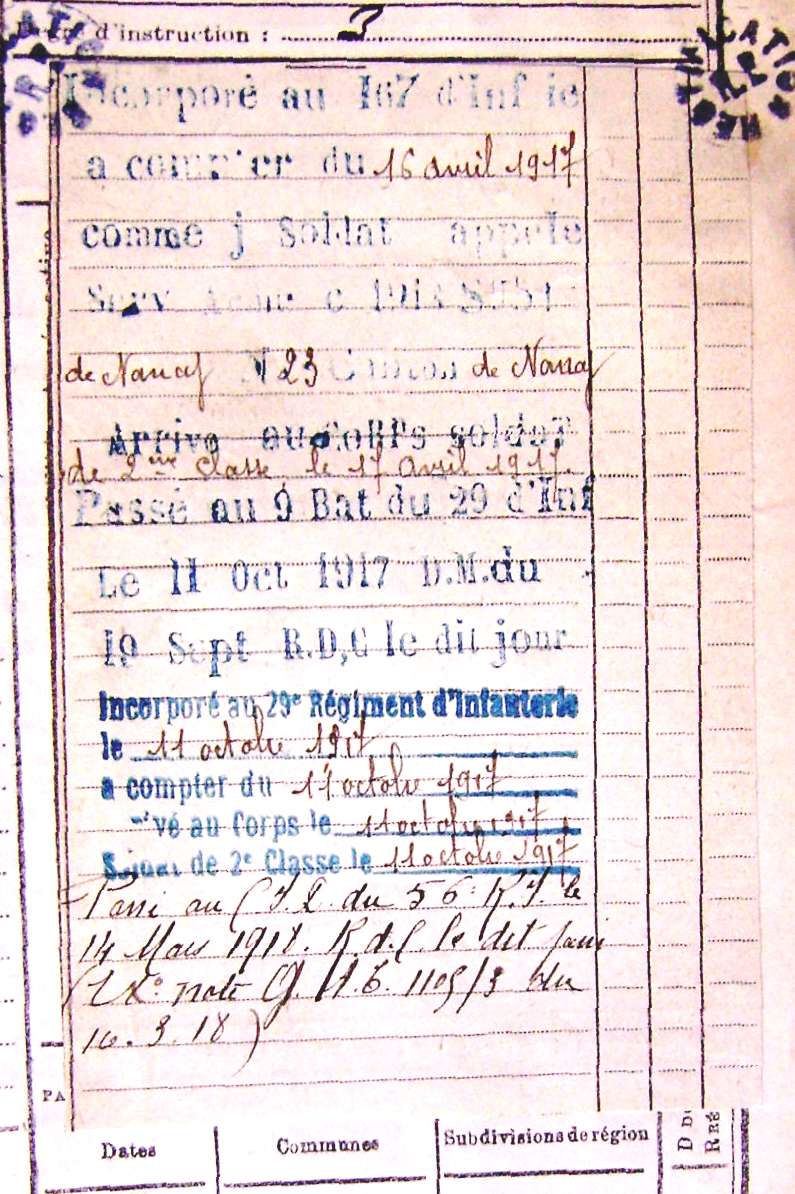 d'instruction : 3
Incorporé au 167 d'Inf ie
a compter du 16 avril 1917
comme j Soldat appele
Serv
de Nancy N 23 Canton de Nancy
Arrive au CORPs soldat
de 2me classe le 17 Avril 1917.
Passé au 9 Bat du 29 d'Inf
Le 11 Oct 1917 D.M.du
19 Sept R.D,C le dit jour
Incorporé au 29e Régiment d'Infanterie
le 11 octobre 1917
a compter du 11 octobre 1917
vé au Corps le 11 octobre 1917
Soldat de 2e Classe le 11 octobre 1917
Passé au du 56e R.I. le
14 Mars 1918. R.d.C le dit jour
note G. 1105/3 du
10.3.18)
PA
Dates Communes Subdivisions de région